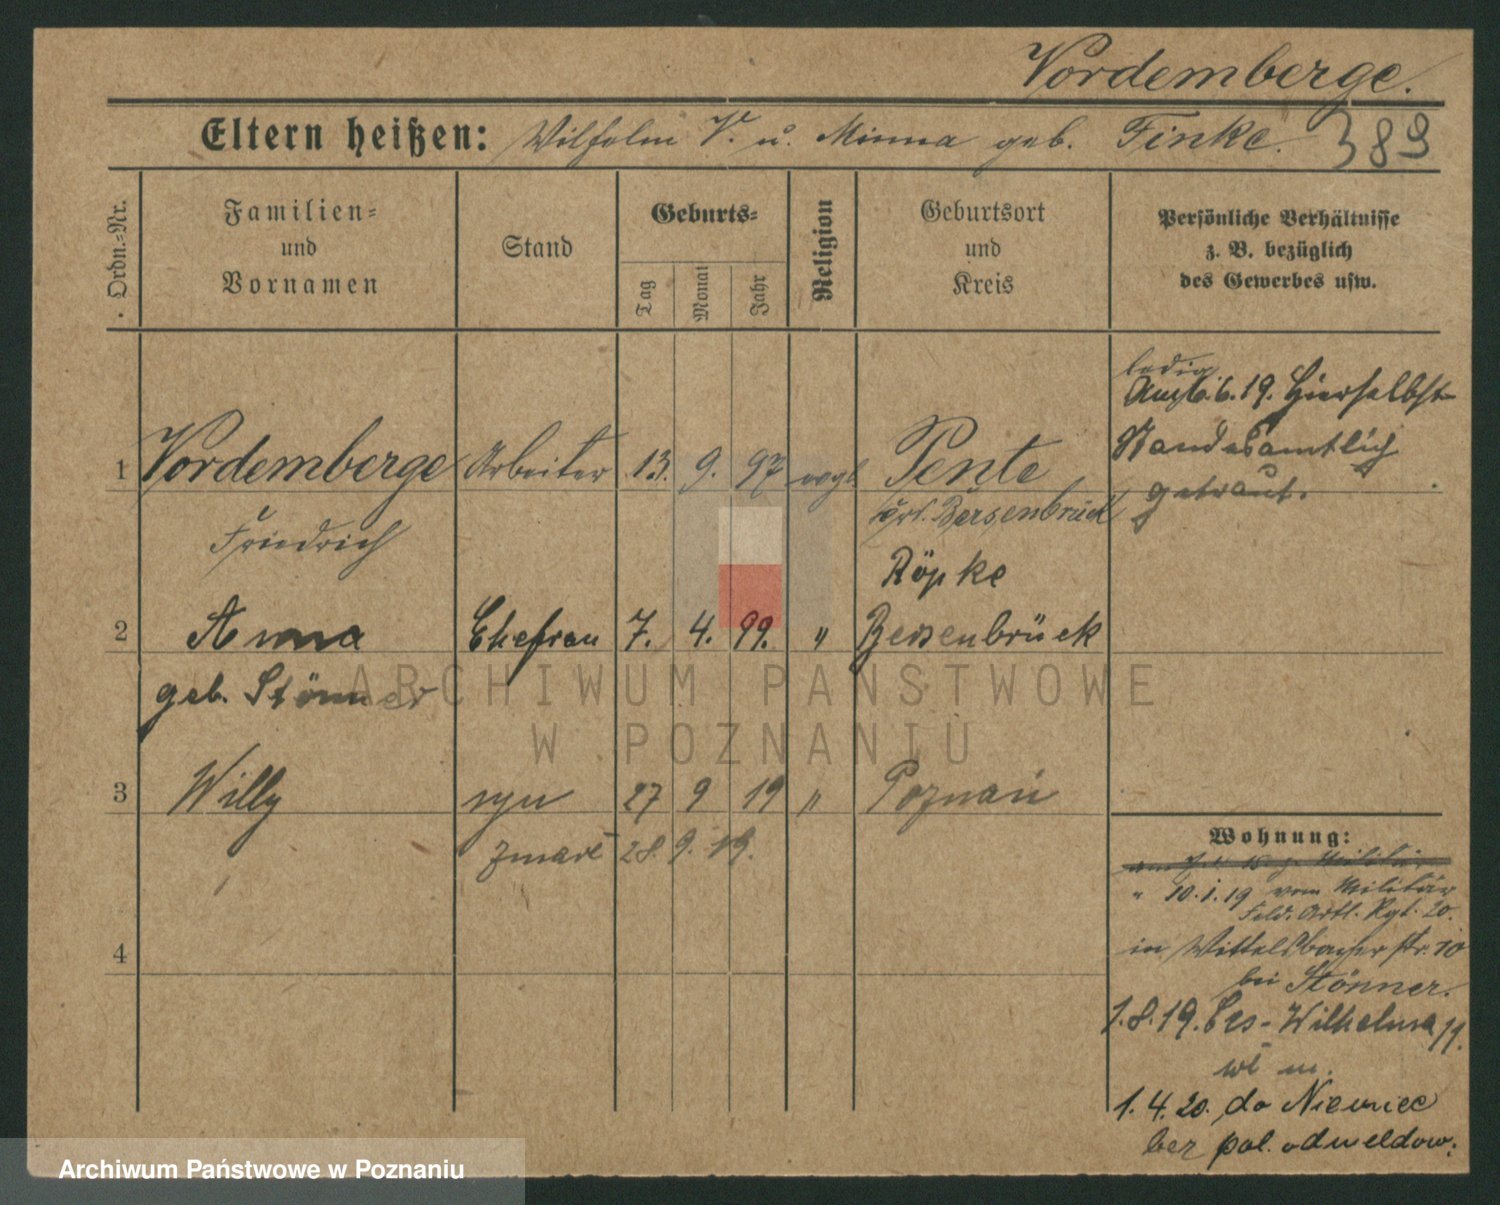 Vordemberge.
Eltern heißen: Wilhelm V. u. Minna geb. Finke. 389
Ordn.-Nr.
Familien-
und
Vornamen
Stand
Geburts-
Tag
Monat
Jahr
Religion
Geburtsort
und
Kreis
Persönliche Verhältnisse
z. B. bezüglich
des Gewerbes usw.
ledig
Am 6.6.19. Hierselbst
Standesamtlich
getraut.
1 Vordemberge Arbeiter 13. 9. 97 evgl Pente
Friedrich
Krs. Bersenbrück
Röpke
2 Anna Ehefrau 7. 4. 99. " Bersenbrück
geb. Stönner
3 Willy syn 27 9 19 " Poznań
zmarł 28. 9. 19.
4
Wohnung:
" 10.1.19 vom Militär
Feld. Artl. Rgt. 20.
in Wittelsbacher str. 10
bei Stönner.
1.8.19. Wilhelma 11.
w m.
1.4.20. do Niemiec
bez pol. odmeldow.
ARCHIWUM PAŃSTWOWE
W POZNANIU
Archiwum Państwowe w Poznaniu